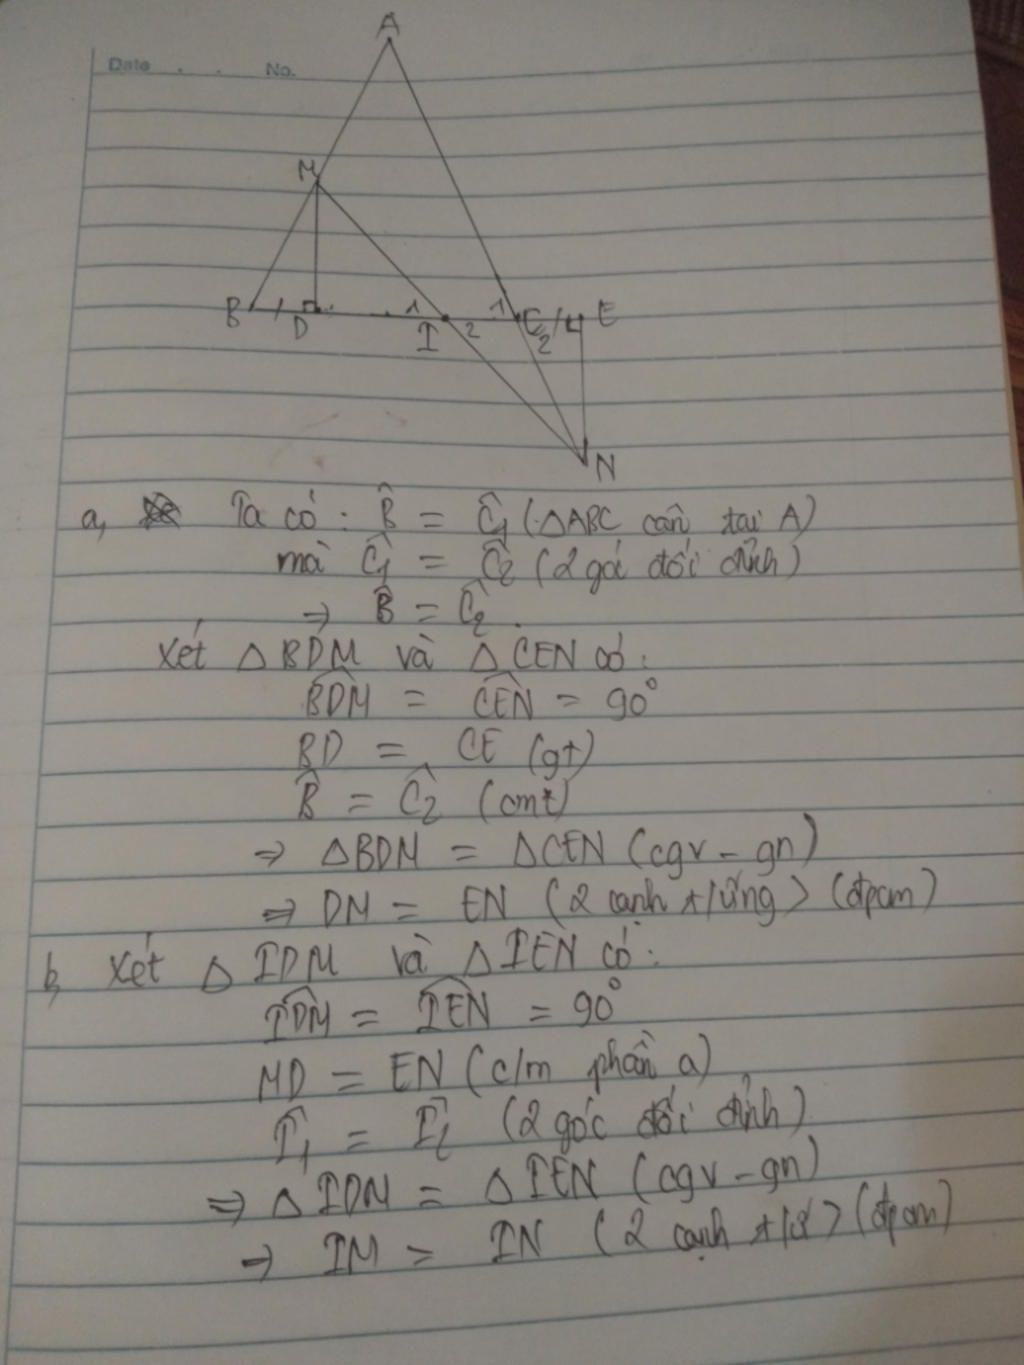 Date . . No.
A
M
B D 1 I 2 1 C 2 E
N
a, Ta có : B̂ = Ĉ₁ (ΔABC cân tại A)
mà Ĉ₁ = Ĉ₂ (2 góc đối đỉnh)
→ B̂ = Ĉ₂ .
Xét Δ BDM và Δ CEN có :
BDM = CEN = 90°
BD = CE (gt)
B̂ = Ĉ₂ (cmt)
⇒ ΔBDM = ΔCEN (cgv - gn)
⇒ DM = EN (2 cạnh t/ứng) (đpcm)
b, Xét Δ IDM và Δ IEN có :
IDM = IEN = 90°
MD = EN (c/m phần a)
Î₁ = Î₂ (2 góc đối đỉnh)
⇒ Δ IDM = Δ IEN (cgv - gn)
→ IM = IN (2 cạnh t/ứ) (đpcm)